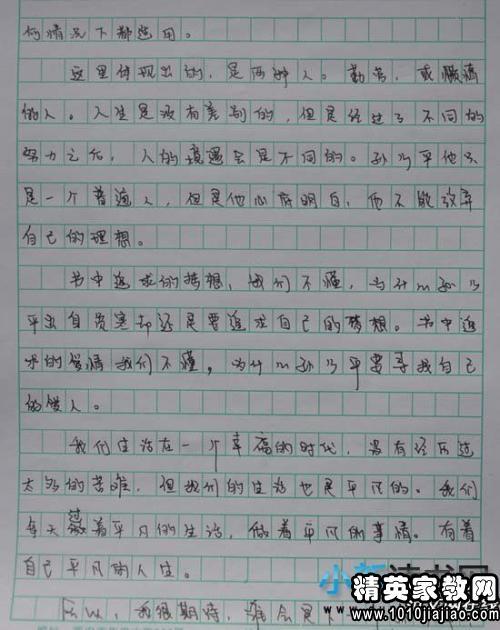 何情况下都适用。
这里体现出的,是两种人。勤劳,或懒惰
的人。人生是没有差别的,但是经过了不同的
努力之后,人的境遇会是不同的。孙少平他只
是一个普通人,但是他心府明白,他不能放弃
自己的理想。
书中追求的梦想,我们不懂,为什么孙少
平出自贫寒却还是要追求自己的梦想。书中追
求的爱情我们不懂,为什么孙少平要寻找自己
的爱人。
我们生活在一个幸福的时代,没有经历过
太多的苦难,但我们的生活也是平凡的。我们
每天过着平凡的生活,做着平凡的事情。有着
自己平凡的人生。
所以,我很期待,谁会是下一
精英家教网
www.1010jiajiao.com